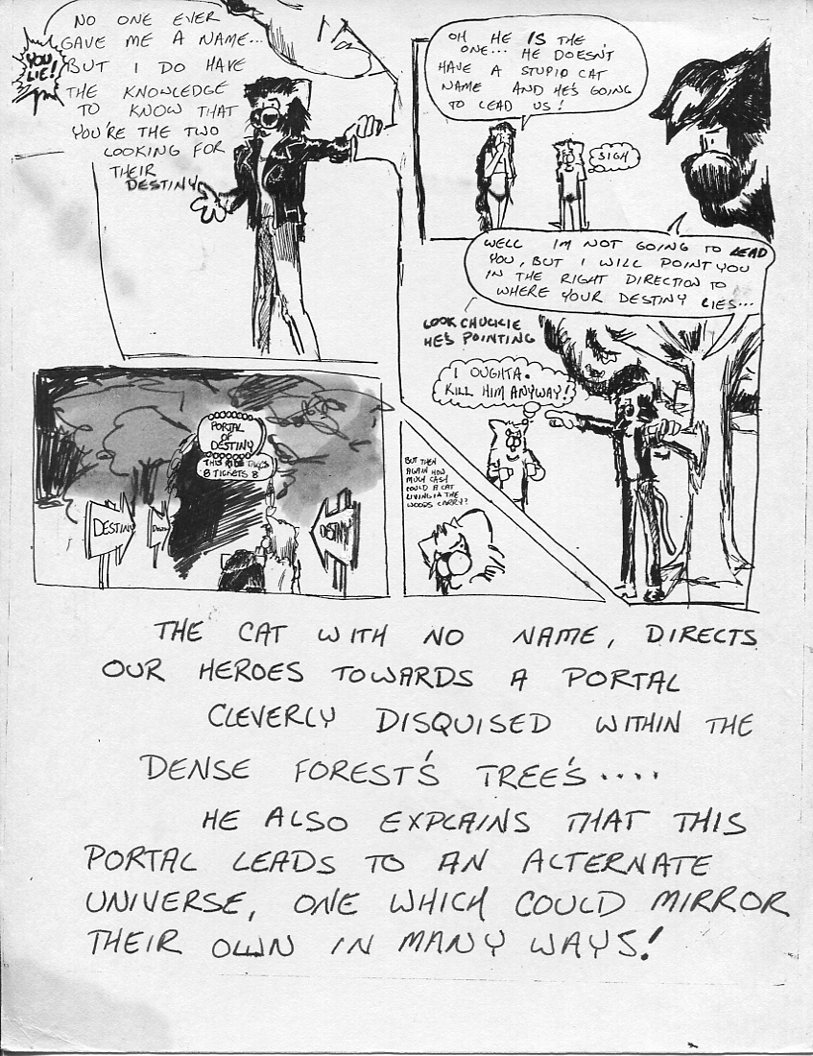 NO ONE EVER
GAVE ME A NAME...
BUT I DO HAVE
THE KNOWLEDGE
TO KNOW THAT
YOU'RE THE TWO
LOOKING FOR
THEIR
DESTINY
YOU
LIE!
OH HE IS THE
ONE... HE DOESN'T
HAVE A STUPID CAT
NAME AND HE'S GOING
TO LEAD US!
SIGH
WELL IM NOT GOING TO LEAD
YOU, BUT I WILL POINT YOU
IN THE RIGHT DIRECTION TO
WHERE YOUR DESTINY LIES...
LOOK CHUCKIE
HE'S POINTING
I OUGHTA.
KILL HIM ANYWAY!
BUT THEN
AGAIN HOW
MUCH CASH
COULD A CAT
LIVING IN THE
WOODS CARRY?
PORTAL
OF
DESTINY
THIS RIDE TAKES
8 TICKETS 8
DESTINY
DESTINY
THE CAT WITH NO NAME, DIRECTS
OUR HEROES TOWARDS A PORTAL
CLEVERLY DISQUISED WITHIN THE
DENSE FOREST'S TREE'S....
HE ALSO EXPLAINS THAT THIS
PORTAL LEADS TO AN ALTERNATE
UNIVERSE, ONE WHICH COULD MIRROR
THEIR OWN IN MANY WAYS!